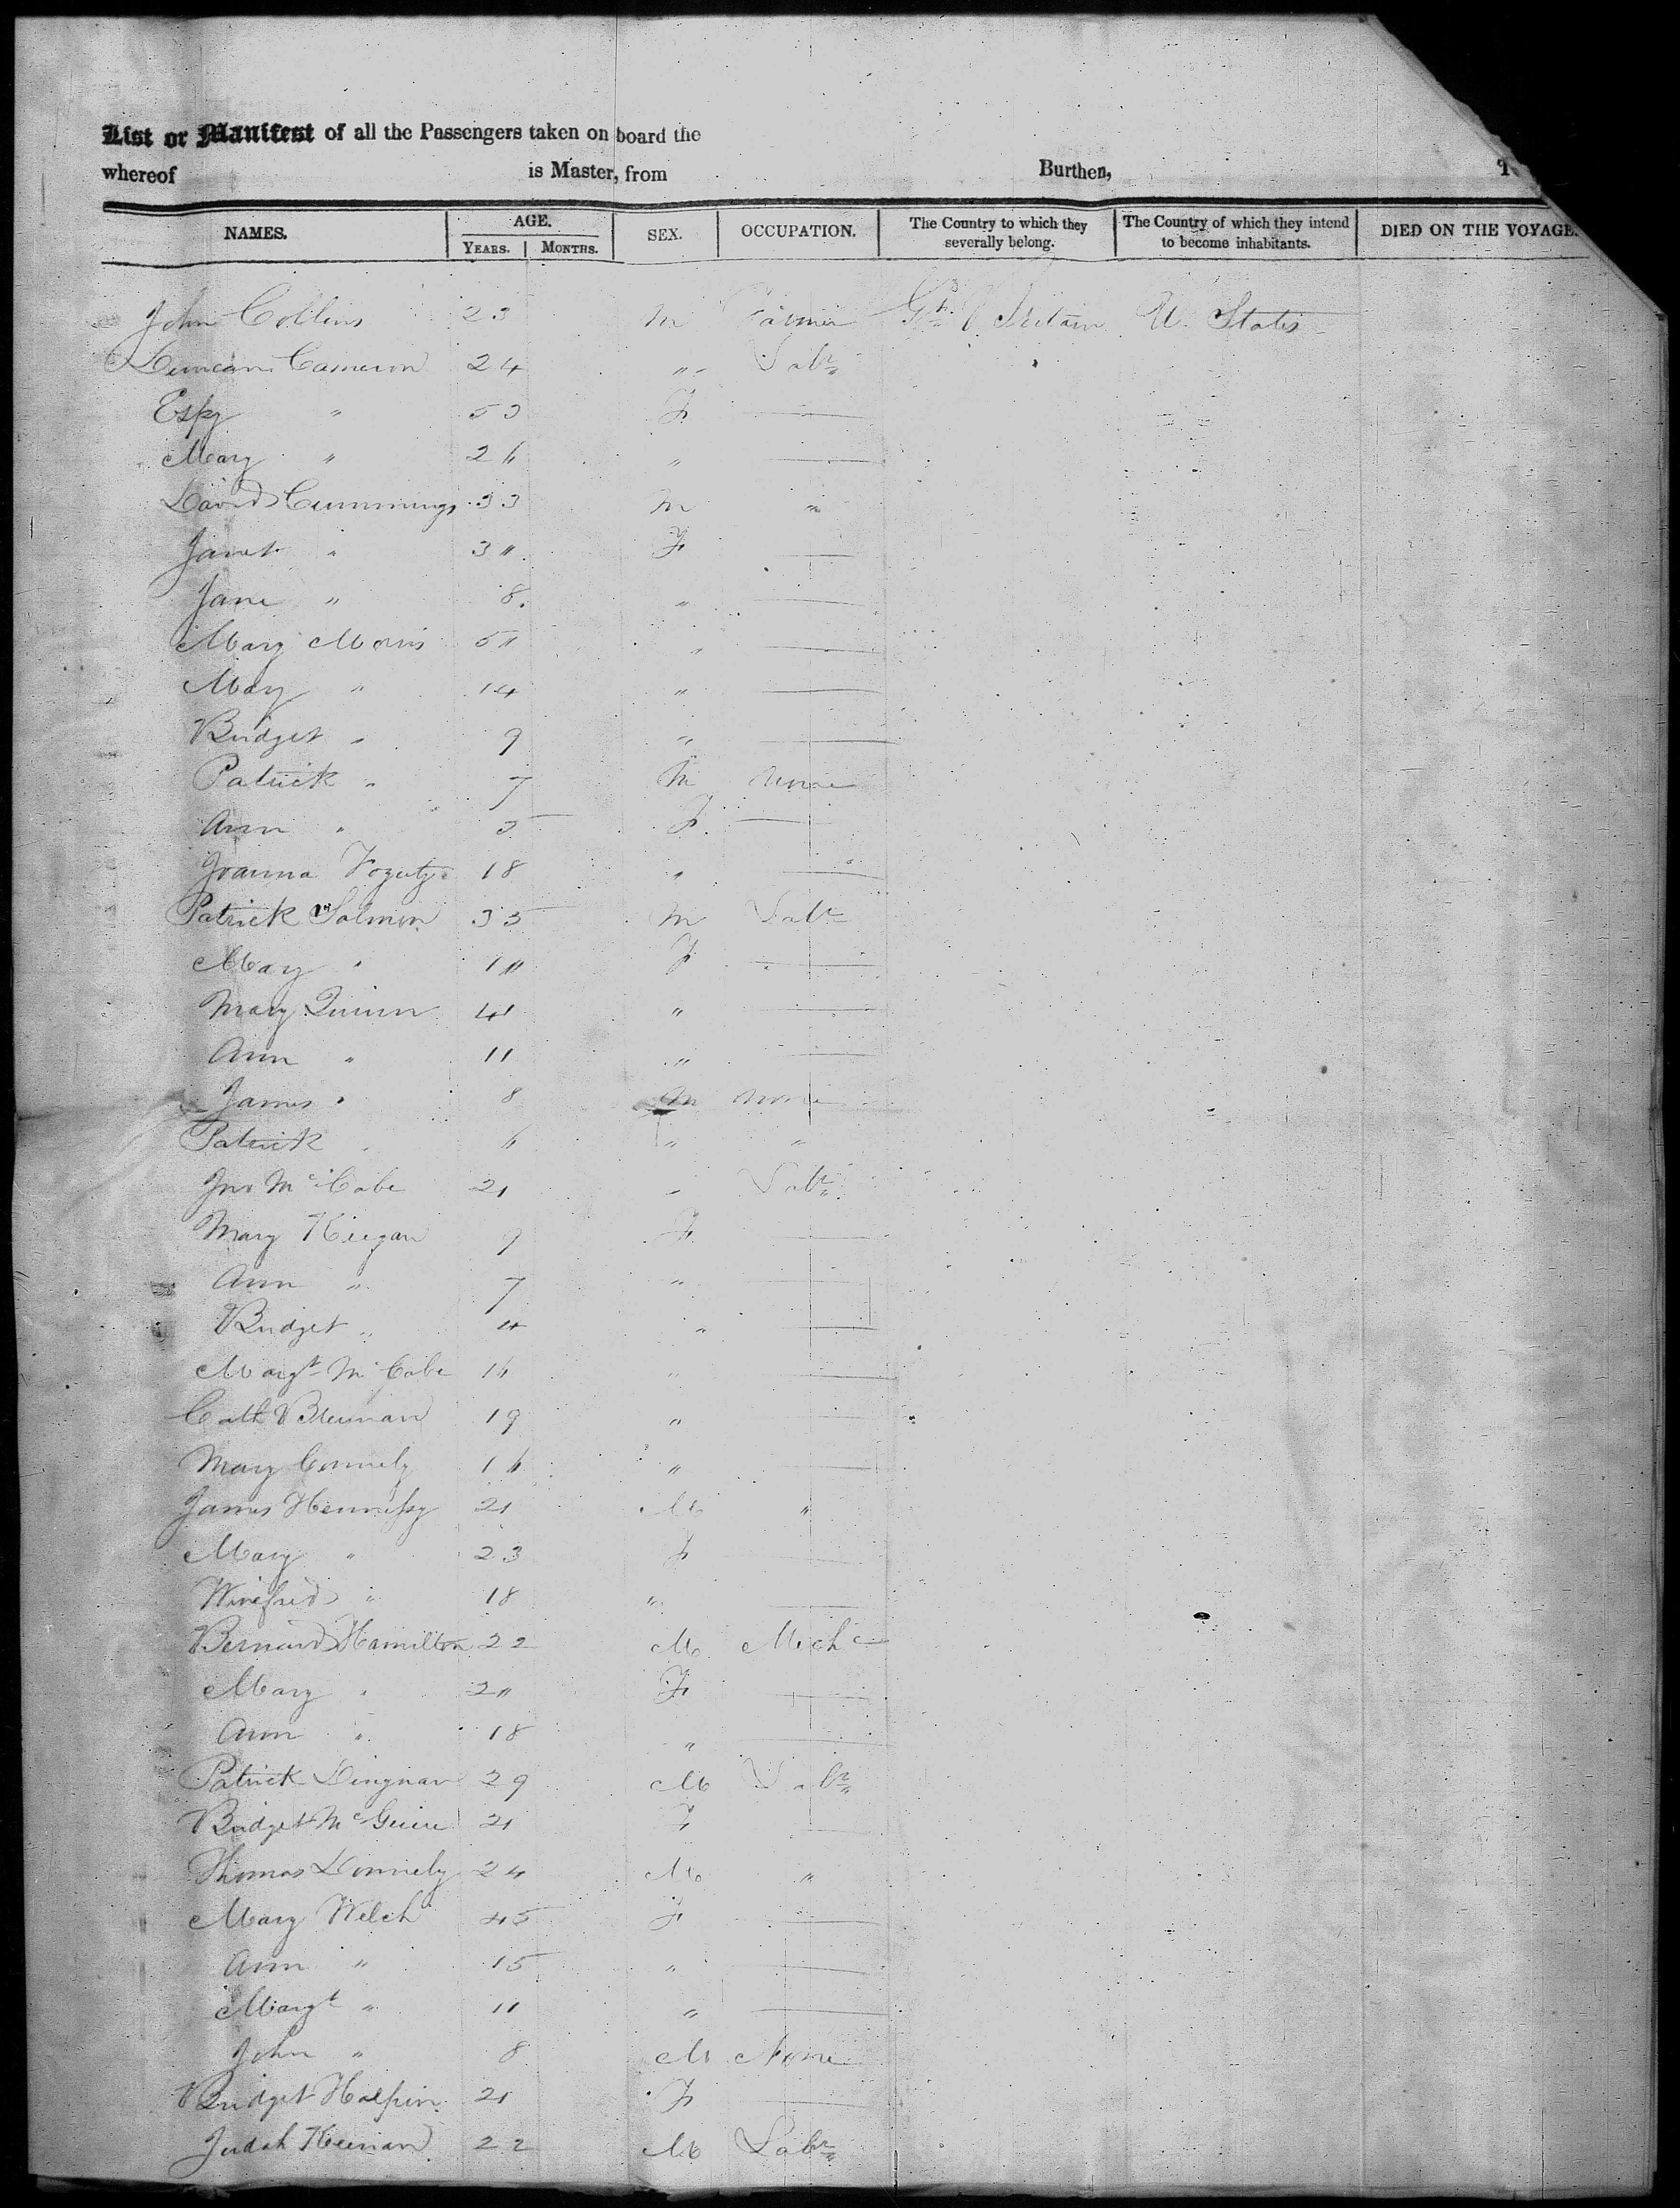 List or Manifest of all the Passengers taken on board the
whereof is Master, from Burthen, T
NAMES. AGE. SEX. OCCUPATION. The Country to which they severally belong. The Country of which they intend to become inhabitants. DIED ON THE VOYAGE.
YEARS. MONTHS.
John Collins 23 M Farmer Gt. Britain U. States
Duncan Cameron 24 " Labr
Espy " 53 F
Mary " 26 "
David Cummings 33 M "
Janet " 30 F
Jane " 8 "
Mary Morris 51 "
Mary " 14 "
Bridget " 9 "
Patrick " 7 M None
Ann " 5 F
Joanna 18 "
Patrick Salmon 35 M Labr
Mary " F
Mary Quinn 41 "
Ann " 11 "
James " 8 M None
Patrick " 6 " "
Jno McCabe 21 " Labr
Mary Keegan 9 F
Ann " 7 "
Bridget " 4 "
Margt McCabe 16 "
Cath Brennan 19 "
Mary Connely 16 "
James Hennessy 21 M "
Mary " 23 F
Winefred " 18 "
Bernard Hamilton 22 M Mechc
Mary " 20 F
Ann " 18 "
Patrick Dingnan 29 M Labr
Bridget McGuire 21 F
Thomas Donnely 24 M "
Mary Welch 45 F
Ann " 15 "
Margt " 11 "
John " 8 M None
Bridget Halpin 21 F
Judah Keenan 22 M Labr